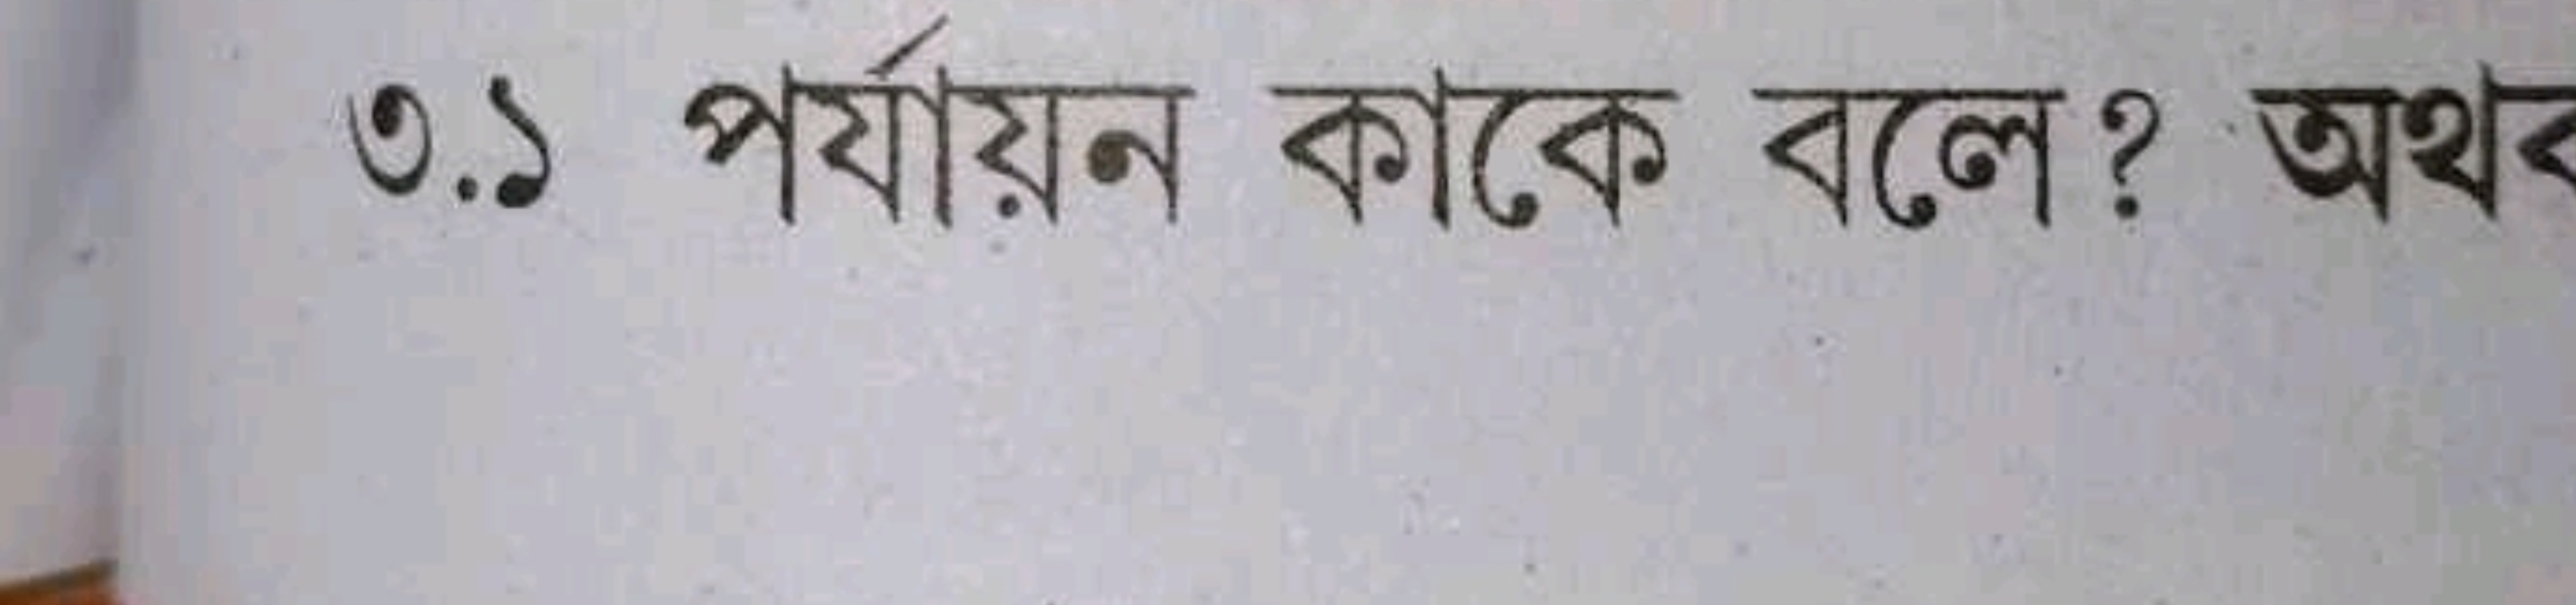 ৩.১ পর্যায়ন কাকে বলে? অথব